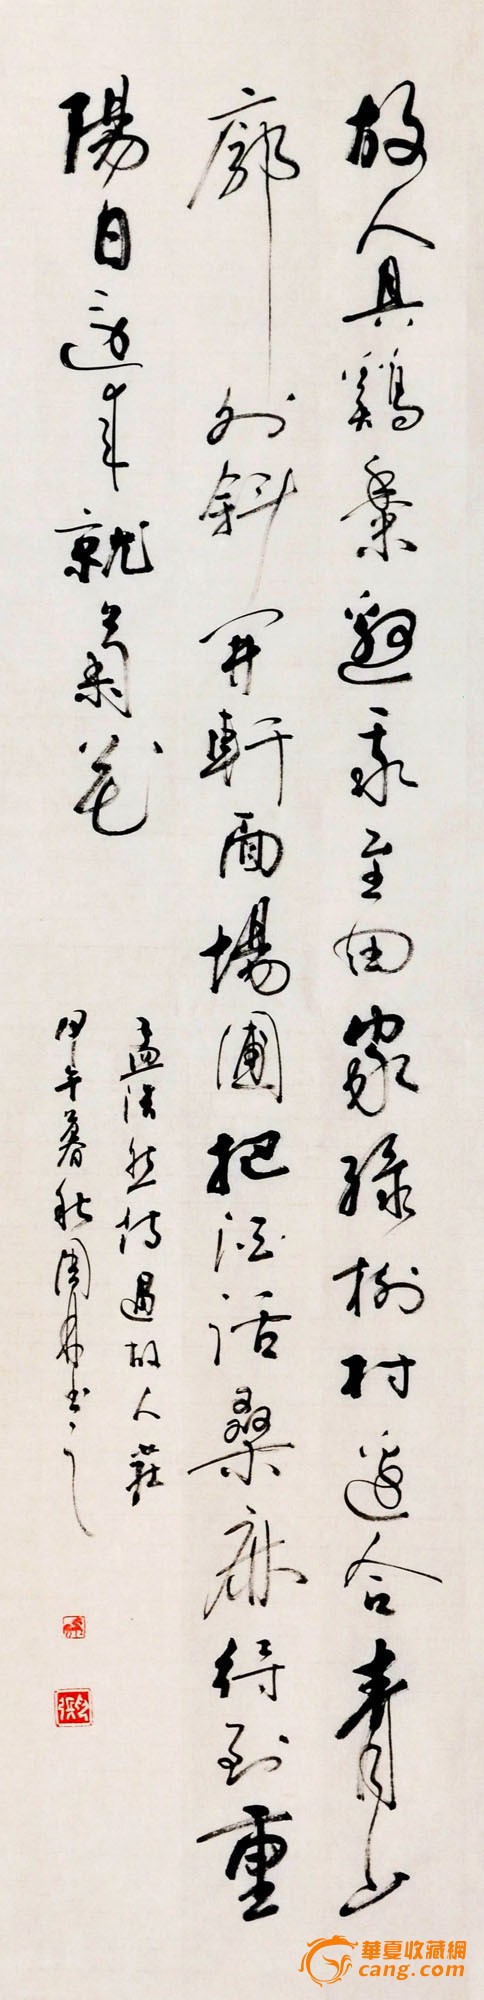 故人具鷄黍邀我至田家綠樹村邊合青山
廓外斜開軒面場圃把酒話桑麻待到重
陽日還来就菊花
孟浩然詩過故人莊
甲午暮秋周书之
華夏收藏網
cang.com